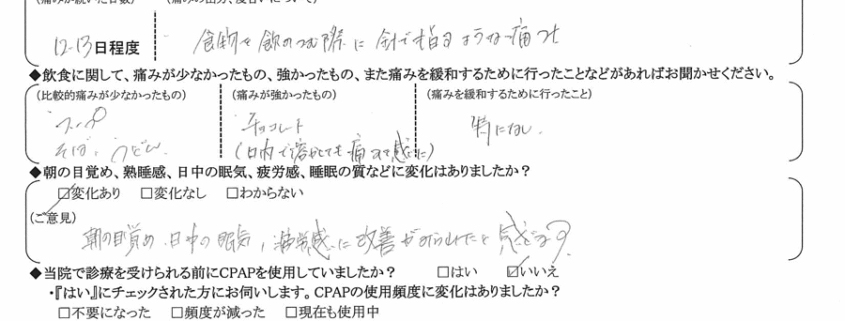 (痛みが続いた日数) (痛みの部分、度合いについて)
12-13日程度 食物を飲みこむ際に針で指すような痛さ
◆飲食に関して、痛みが少なかったもの、強かったもの、また痛みを緩和するために行ったことなどがあればお聞かせください。
(比較的痛みが少なかったもの) (痛みが強かったもの) (痛みを緩和するために行ったこと)
スープ チョコレート 特になし。
そば、うどん (口内で溶かしても痛さを感じた)
◆朝の目覚め、熟睡感、日中の眠気、疲労感、睡眠の質などに変化はありましたか?
☑変化あり □変化なし □わからない
(ご意見)
朝の目覚め、日中の眠気、疲労感に改善がみられたと感じる。
◆当院で診療を受けられる前にCPAPを使用していましたか? □はい ☑いいえ
・『はい』にチェックされた方にお伺いします。CPAPの使用頻度に変化はありましたか?
□不要になった □頻度が減った □現在も使用中